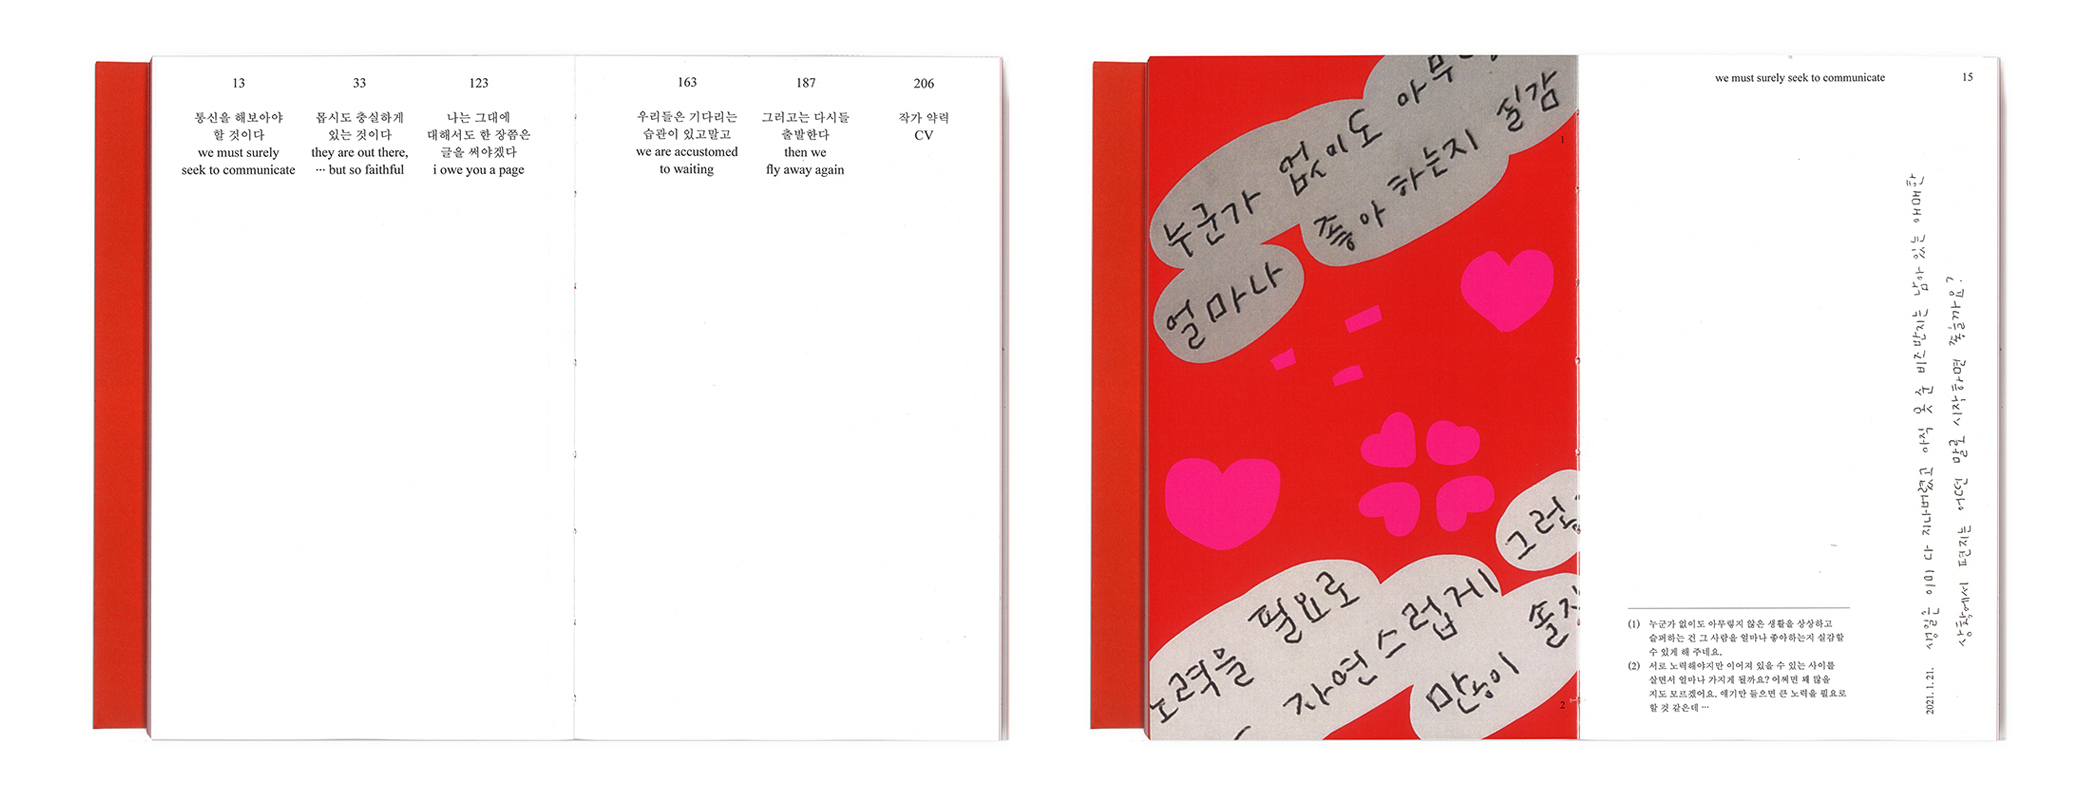 13
통신을 해보아야
할 것이다
we must surely
seek to communicate
33
몹시도 충실하게
있는 것이다
they are out there,
… but so faithful
123
나는 그대에
대해서도 한 장쯤은
글을 써야겠다
i owe you a page
163
우리들은 기다리는
습관이 있고말고
we are accustomed
to waiting
187
그러고는 다시들
출발한다
then we
fly away again
206
작가 약력
CV
누군가 없이도 아무
얼마나 좋아 하는지 실감
1
그럴
노력을 필요로
자연스럽게
만히 솔직
2
we must surely seek to communicate
15
(1) 누군가 없이도 아무렇지 않은 생활을 상상하고
슬퍼하는 건 그 사람을 얼마나 좋아하는지 실감할
수 있게 해 주네요.
(2) 서로 노력해야지만 이어져 있을 수 있는 사이를
살면서 얼마나 가지게 될까요? 어쩌면 꽤 많을
지도 모르겠어요. 얘기만 들으면 큰 노력을 필요로
할 것 같은데 …
2021. 1. 21.
생일은 이미 다 지나버렸고 아직 못 준 비즈반지는 남아 있는 애매한
상황에서 편지를 적어 글을 시작하면 좋을까요?